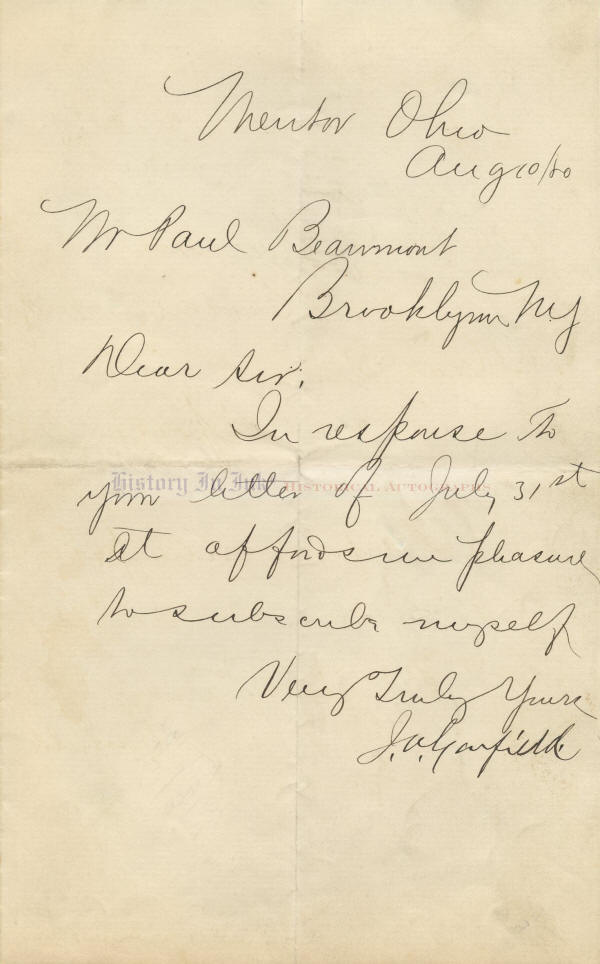 Mentor Ohio
Aug 10/80
Mr Paul Beaumont
Brooklynn N.Y
Dear Sir.
In response to
your letter of July 31st
History In Ink HISTORICAL AUTOGRAPHS
it affords me pleasure
to subscribe myself
Very Truly Yours
J.A. Garfield